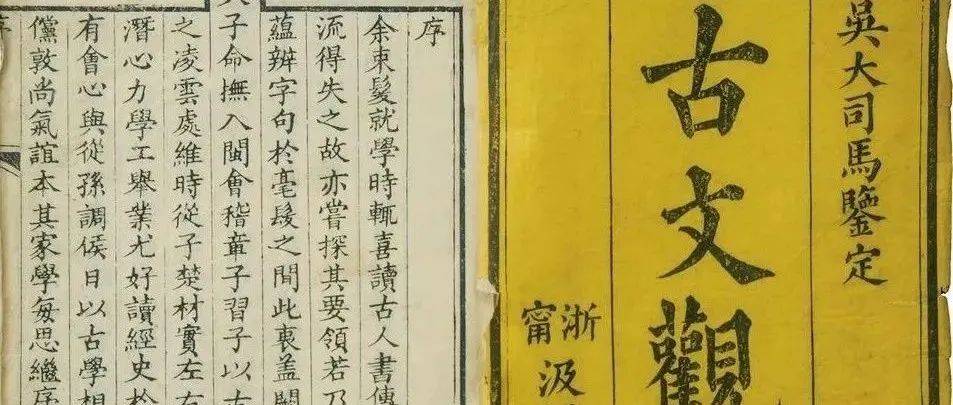 吳大司馬鑒定
古文觀
浙
甯
汲
序
余束髮就學時輒喜讀古人書傳
流得失之故亦嘗探其要領若乃
蘊辨字句於毫髮之間此衷蓋闕
子命撫入閩會稽章子習子以古
之凌雲處維時從子楚材實左右
潛心力學工舉業尤好讀經史於
有會心與從孫調侯日以古學相
儻敦尚氣誼本其家學每思繼序